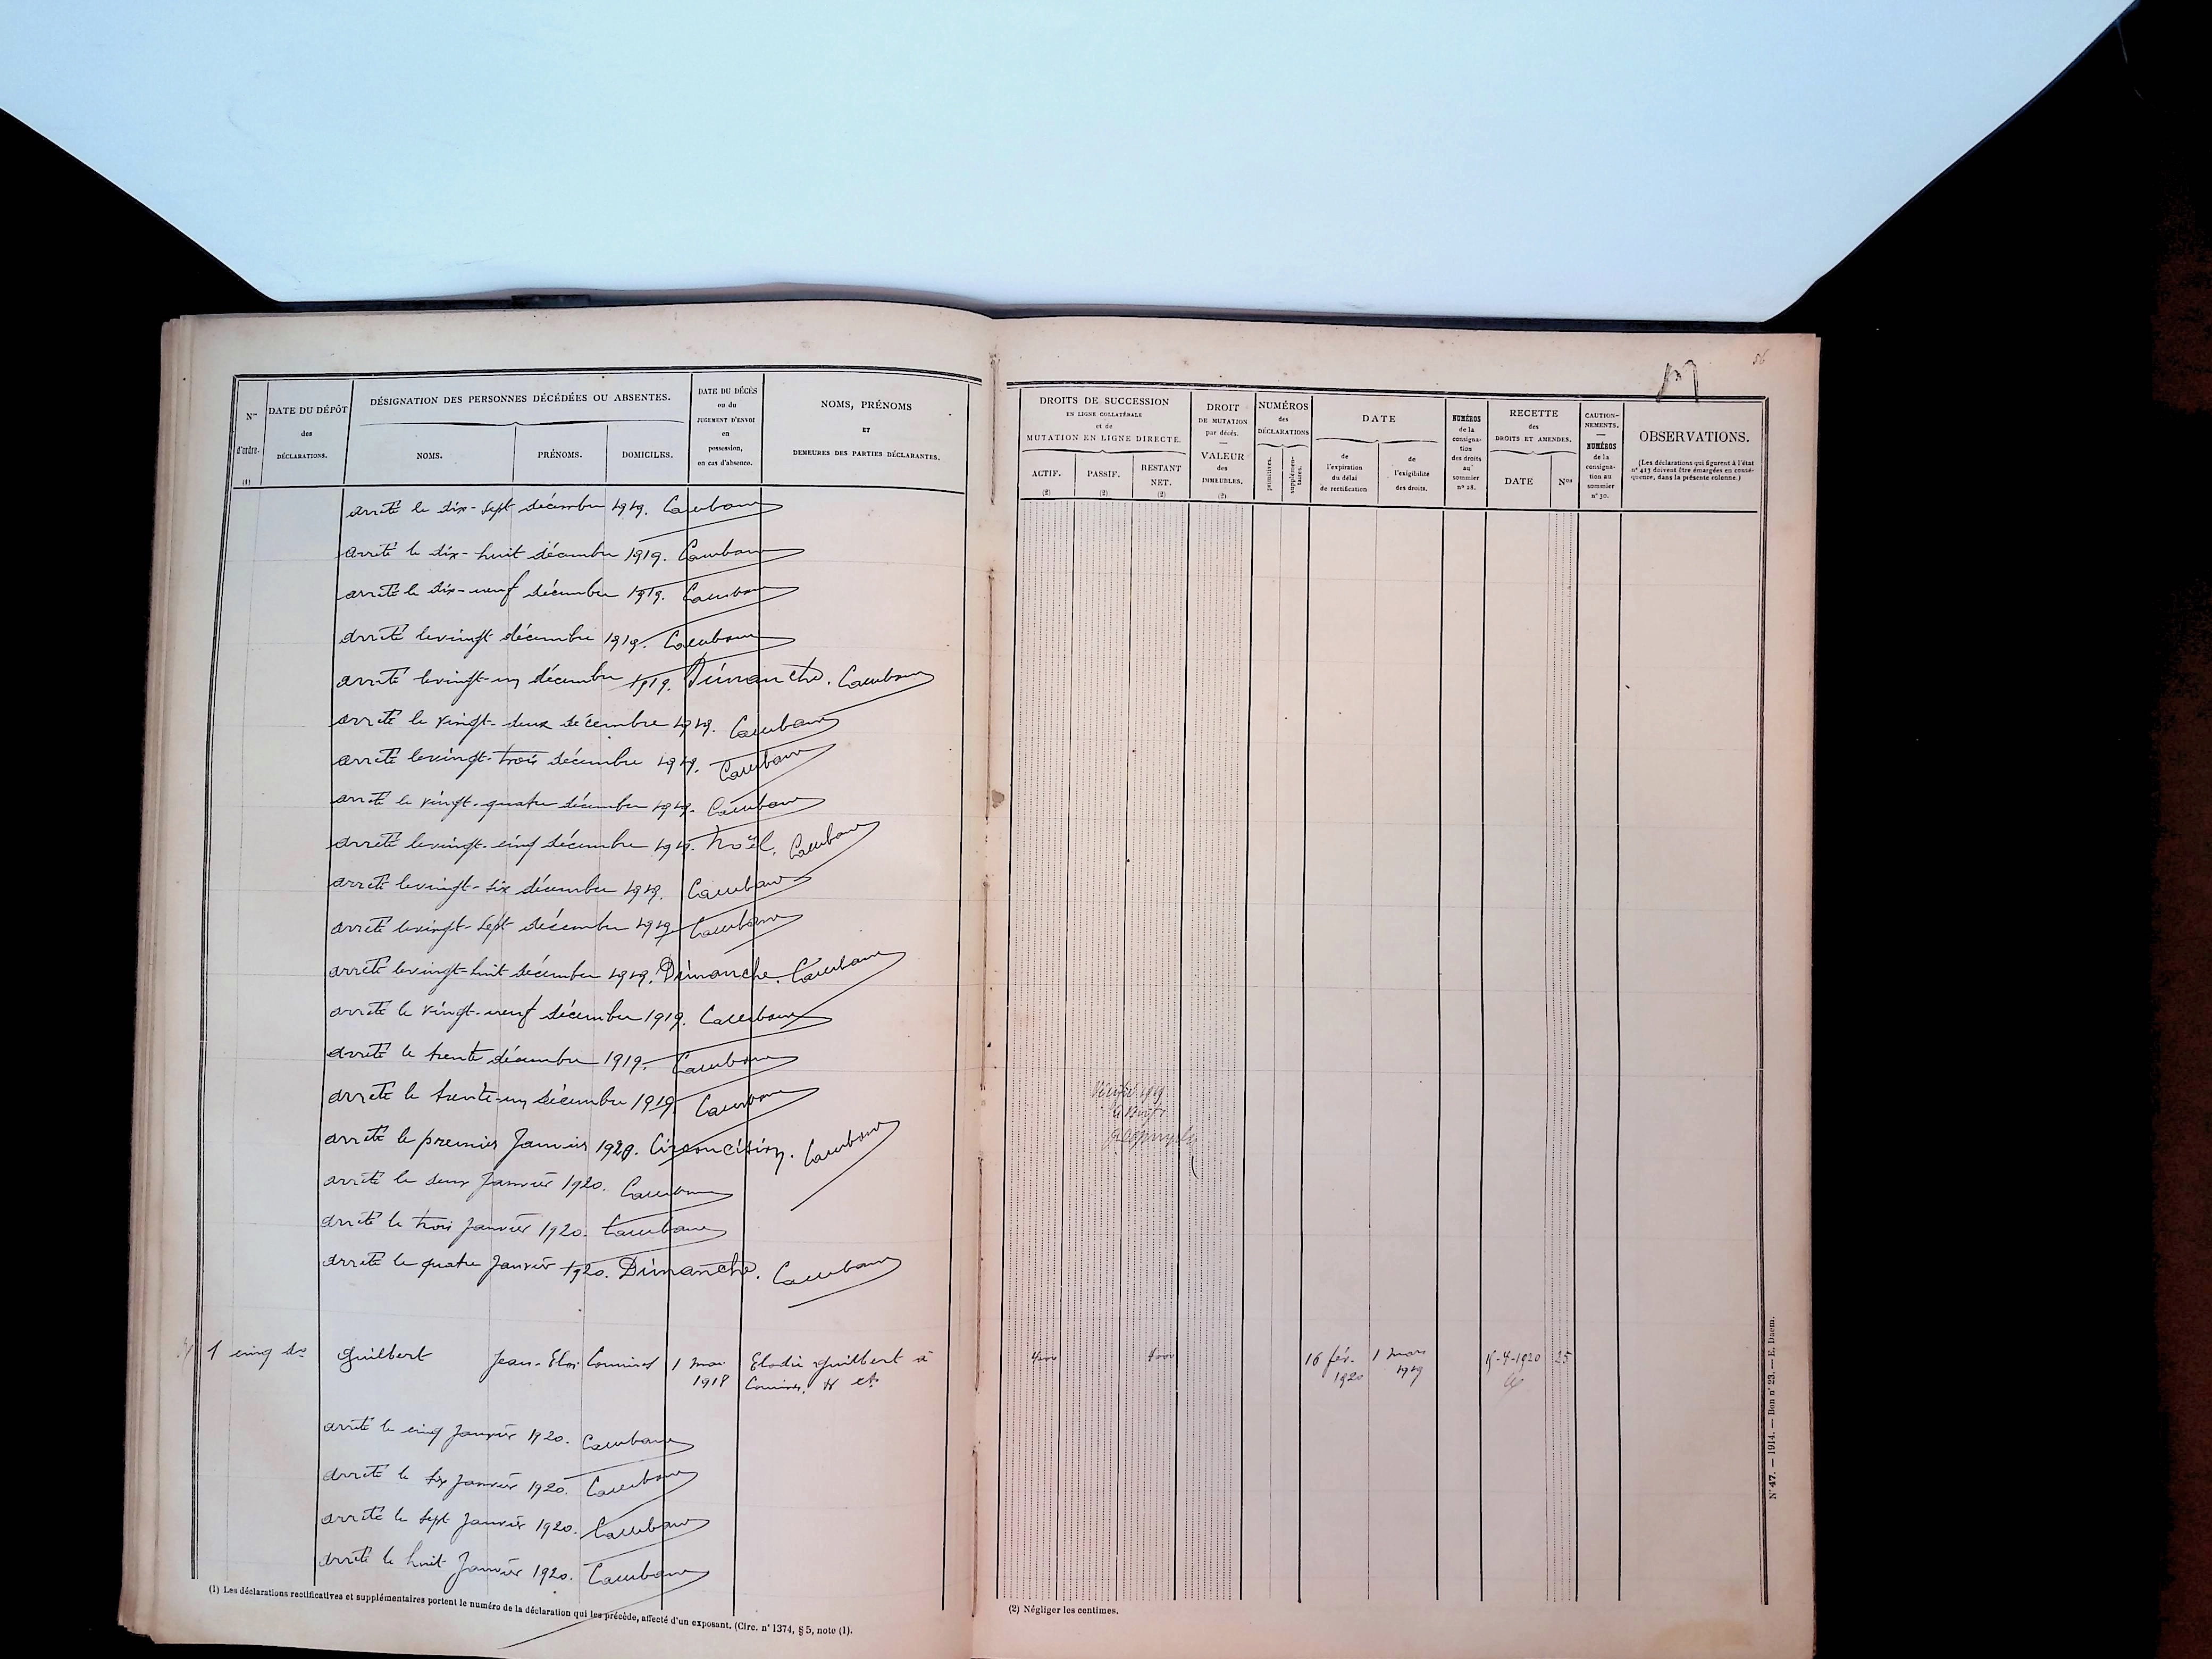 Nos d'ordre. (1)
DATE DU DÉPÔT des DÉCLARATIONS.
DÉSIGNATION DES PERSONNES DÉCÉDÉES OU ABSENTES.
NOMS. PRÉNOMS. DOMICILES.
DATE DU DÉCÈS ou du JUGEMENT D'ENVOI en possession, en cas d'absence.
NOMS, PRÉNOMS ET DEMEURES DES PARTIES DÉCLARANTES.
arrêté le dix-sept décembre 1919.
arrêté le dix-huit décembre 1919.
arrêté le dix-neuf décembre 1919.
arrêté le vingt décembre 1919.
arrêté le vingt-un décembre 1919. Dimanche.
arrêté le vingt-deux décembre 1919.
arrêté le vingt-trois décembre 1919.
arrêté le vingt-quatre décembre 1919.
arrêté le vingt-cinq décembre 1919. Noël.
arrêté le vingt-six décembre 1919.
arrêté le vingt-sept décembre 1919.
arrêté le vingt-huit décembre 1919. Dimanche.
arrêté le vingt-neuf décembre 1919.
arrêté le trente décembre 1919.
arrêté le trente-un décembre 1919.
arrêté le premier Janvier 1920. Circoncision.
arrêté le deux Janvier 1920.
arrêté le trois Janvier 1920.
arrêté le quatre Janvier 1920. Dimanche.
1 cinq do Guilbert Jean-Eloi Comines 1 mai Elodie Guilbert à
1918 Comines.
arrêté le cinq Janvier 1920.
arrêté le six Janvier 1920.
arrêté le sept Janvier 1920.
arrêté le huit Janvier 1920.
(1) Les déclarations rectificatives et supplémentaires portent le numéro de la déclaration qui les précède, affecté d'un exposant. (Circ. n° 1374, § 5, note (1).
56
DROITS DE SUCCESSION
EN LIGNE COLLATÉRALE
et de
MUTATION EN LIGNE DIRECTE.
ACTIF. (2) PASSIF. (2) RESTANT NET. (2)
DROIT DE MUTATION par décès. — VALEUR des IMMEUBLES. (2)
NUMÉROS des DÉCLARATIONS
primitives. supplémentaires.
DATE
de l'expiration du délai de rectification
de l'exigibilité des droits.
NUMÉROS de la consignation des droits au sommier n° 28.
RECETTE des DROITS ET AMENDES.
DATE Nos
CAUTIONNEMENTS. — NUMÉROS de la consignation au sommier n° 30.
OBSERVATIONS.
(Les déclarations qui figurent à l'état n° 413 doivent être émargées en conséquence, dans la présente colonne.)
4000 4000 16 fév. 1 mars 25
1920 1919
(2) Négliger les centimes.
N° 47. — 1914. — Bon n° 23. — E. Daem.